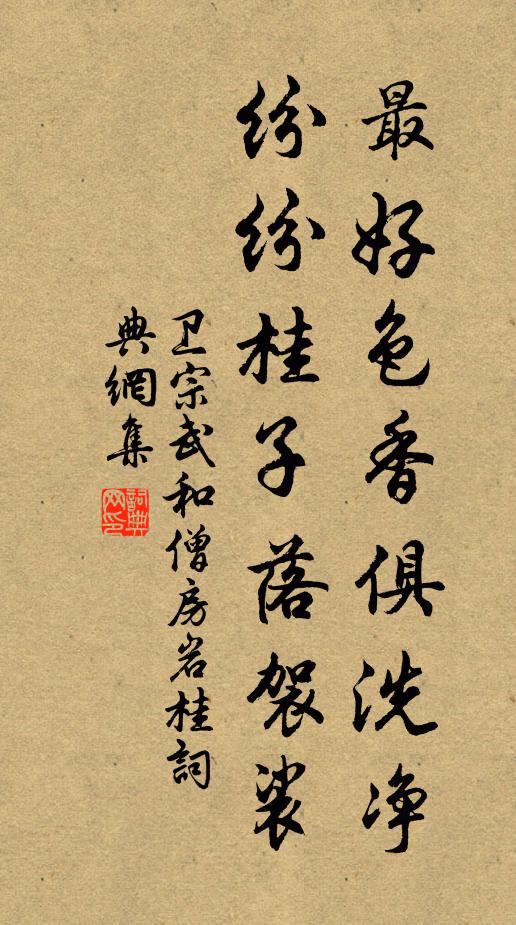 最好色香俱洗净
纷纷桂子落袈裟
卫宗武和僧房岩桂詞
典網集
詞典網印